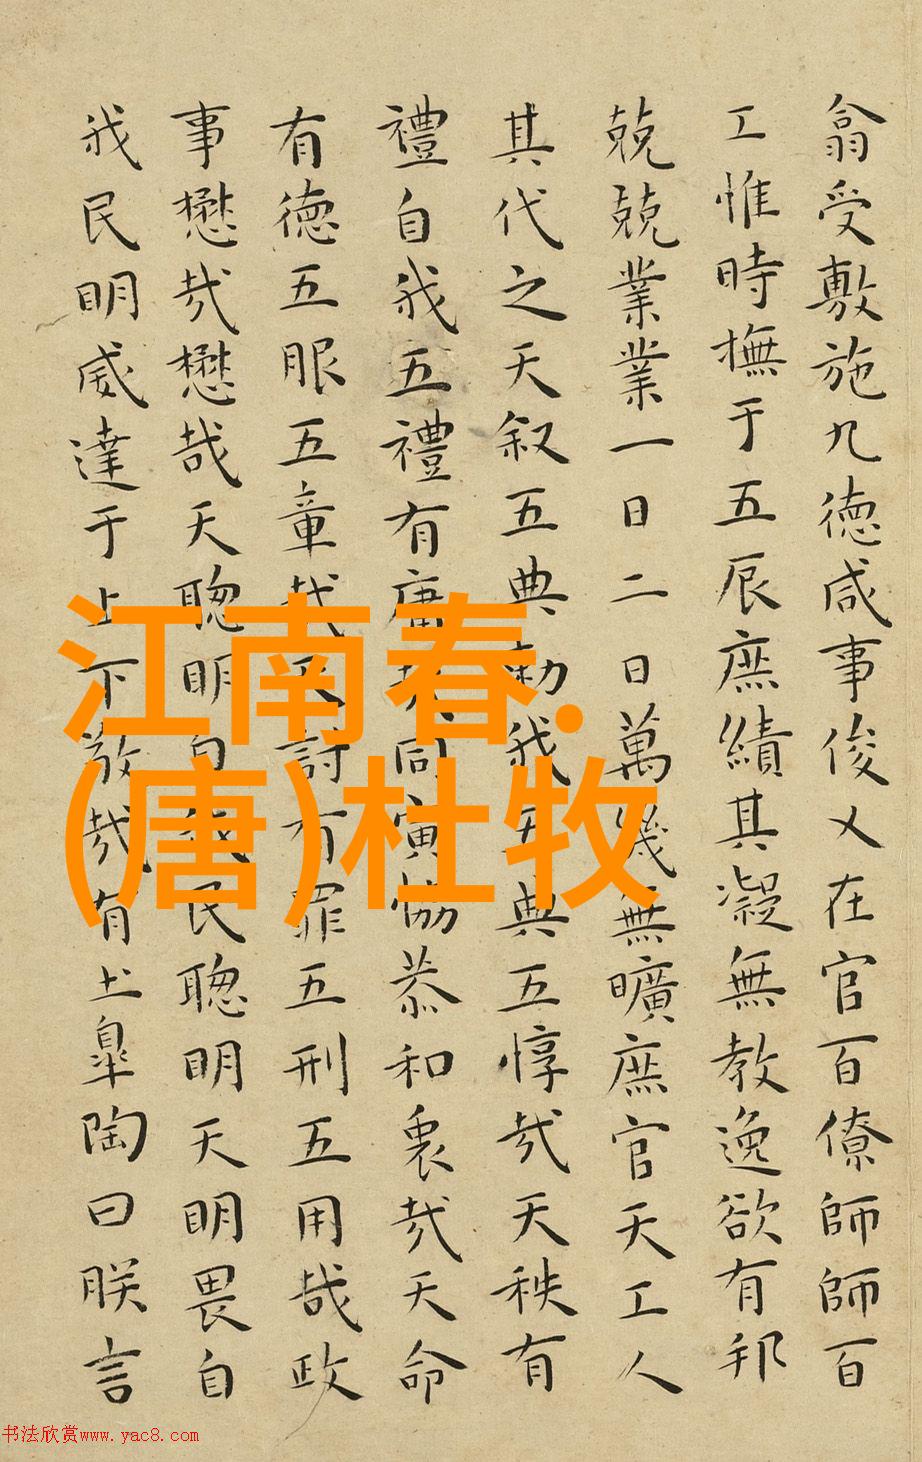 翕受敷施九德咸事俊乂在官百僚師師百
工惟時撫于五辰庶績其凝無教逸欲有邦
兢兢業業一日二日萬幾無曠庶官天工人
其代之天叙五典勑我五典五惇哉天秩有
禮自我五禮有庸哉同寅協恭和衷哉天命
有德五服五章哉天討有罪五刑五用哉政
事懋哉懋哉天聰明自我民聰明天明畏自
我民明威達于上下敬哉有土皋陶曰朕言
江南春.
(唐)杜牧
书法欣赏www.yac8.com